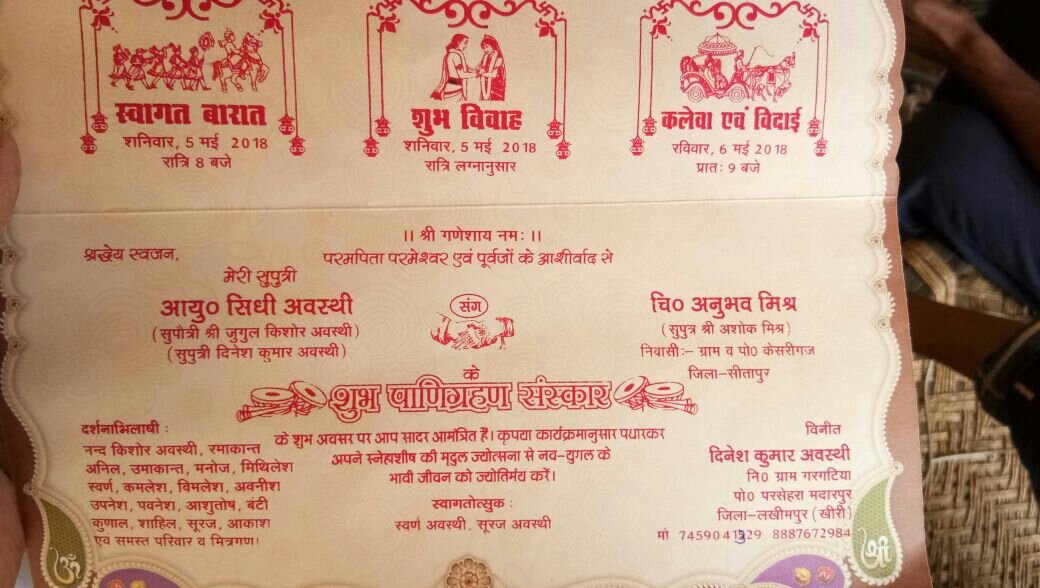 स्वागत बारात
शनिवार, 5 मई 2018
रात्रि 8 बजे
शुभ विवाह
शनिवार, 5 मई 2018
रात्रि लग्नानुसार
कलेवा एवं विदाई
रविवार, 6 मई 2018
प्रातः 9 बजे
।। श्री गणेशाय नमः ।।
श्रद्धेय स्वजन,
परमपिता परमेश्वर एवं पूर्वजों के आशीर्वाद से
मेरी सुपुत्री
आयु० सिधी अवस्थी
(सुपौत्री श्री जुगुल किशोर अवस्थी)
(सुपुत्री दिनेश कुमार अवस्थी)
संग
चि० अनुभव मिश्र
(सुपुत्र श्री अशोक मिश्र)
निवासीः– ग्राम व पो० केसरीगज
जिला–सीतापुर
के
शुभ पाणिग्रहण संस्कार
के शुभ अवसर पर आप सादर आमंत्रित हैं। कृपया कार्यक्रमानुसार पधारकर
अपने स्नेहाशीष की मृदुल ज्योत्सना से नव–युगल के
भावी जीवन को ज्योतिर्मय करें।
दर्शनाभिलाषी :
नन्द किशोर अवस्थी, रमाकान्त
अनिल, उमाकान्त, मनोज, मिथिलेश
स्वर्ण, कमलेश, विमलेश, अवनीश
उपनेश, पवनेश, आशुतोष, बंटी
कुणाल, शाहिल, सूरज, आकाश
एवं समस्त परिवार व मित्रगण।
स्वागतोत्सुक :
स्वर्ण अवस्थी, सूरज अवस्थी
विनीत
दिनेश कुमार अवस्थी
नि० ग्राम गरगटिया
पो० परसेहरा मदारपुर
जिला–लखीमपुर (खीरी)
मो 7459041329 8887672984
ॐ
श्री